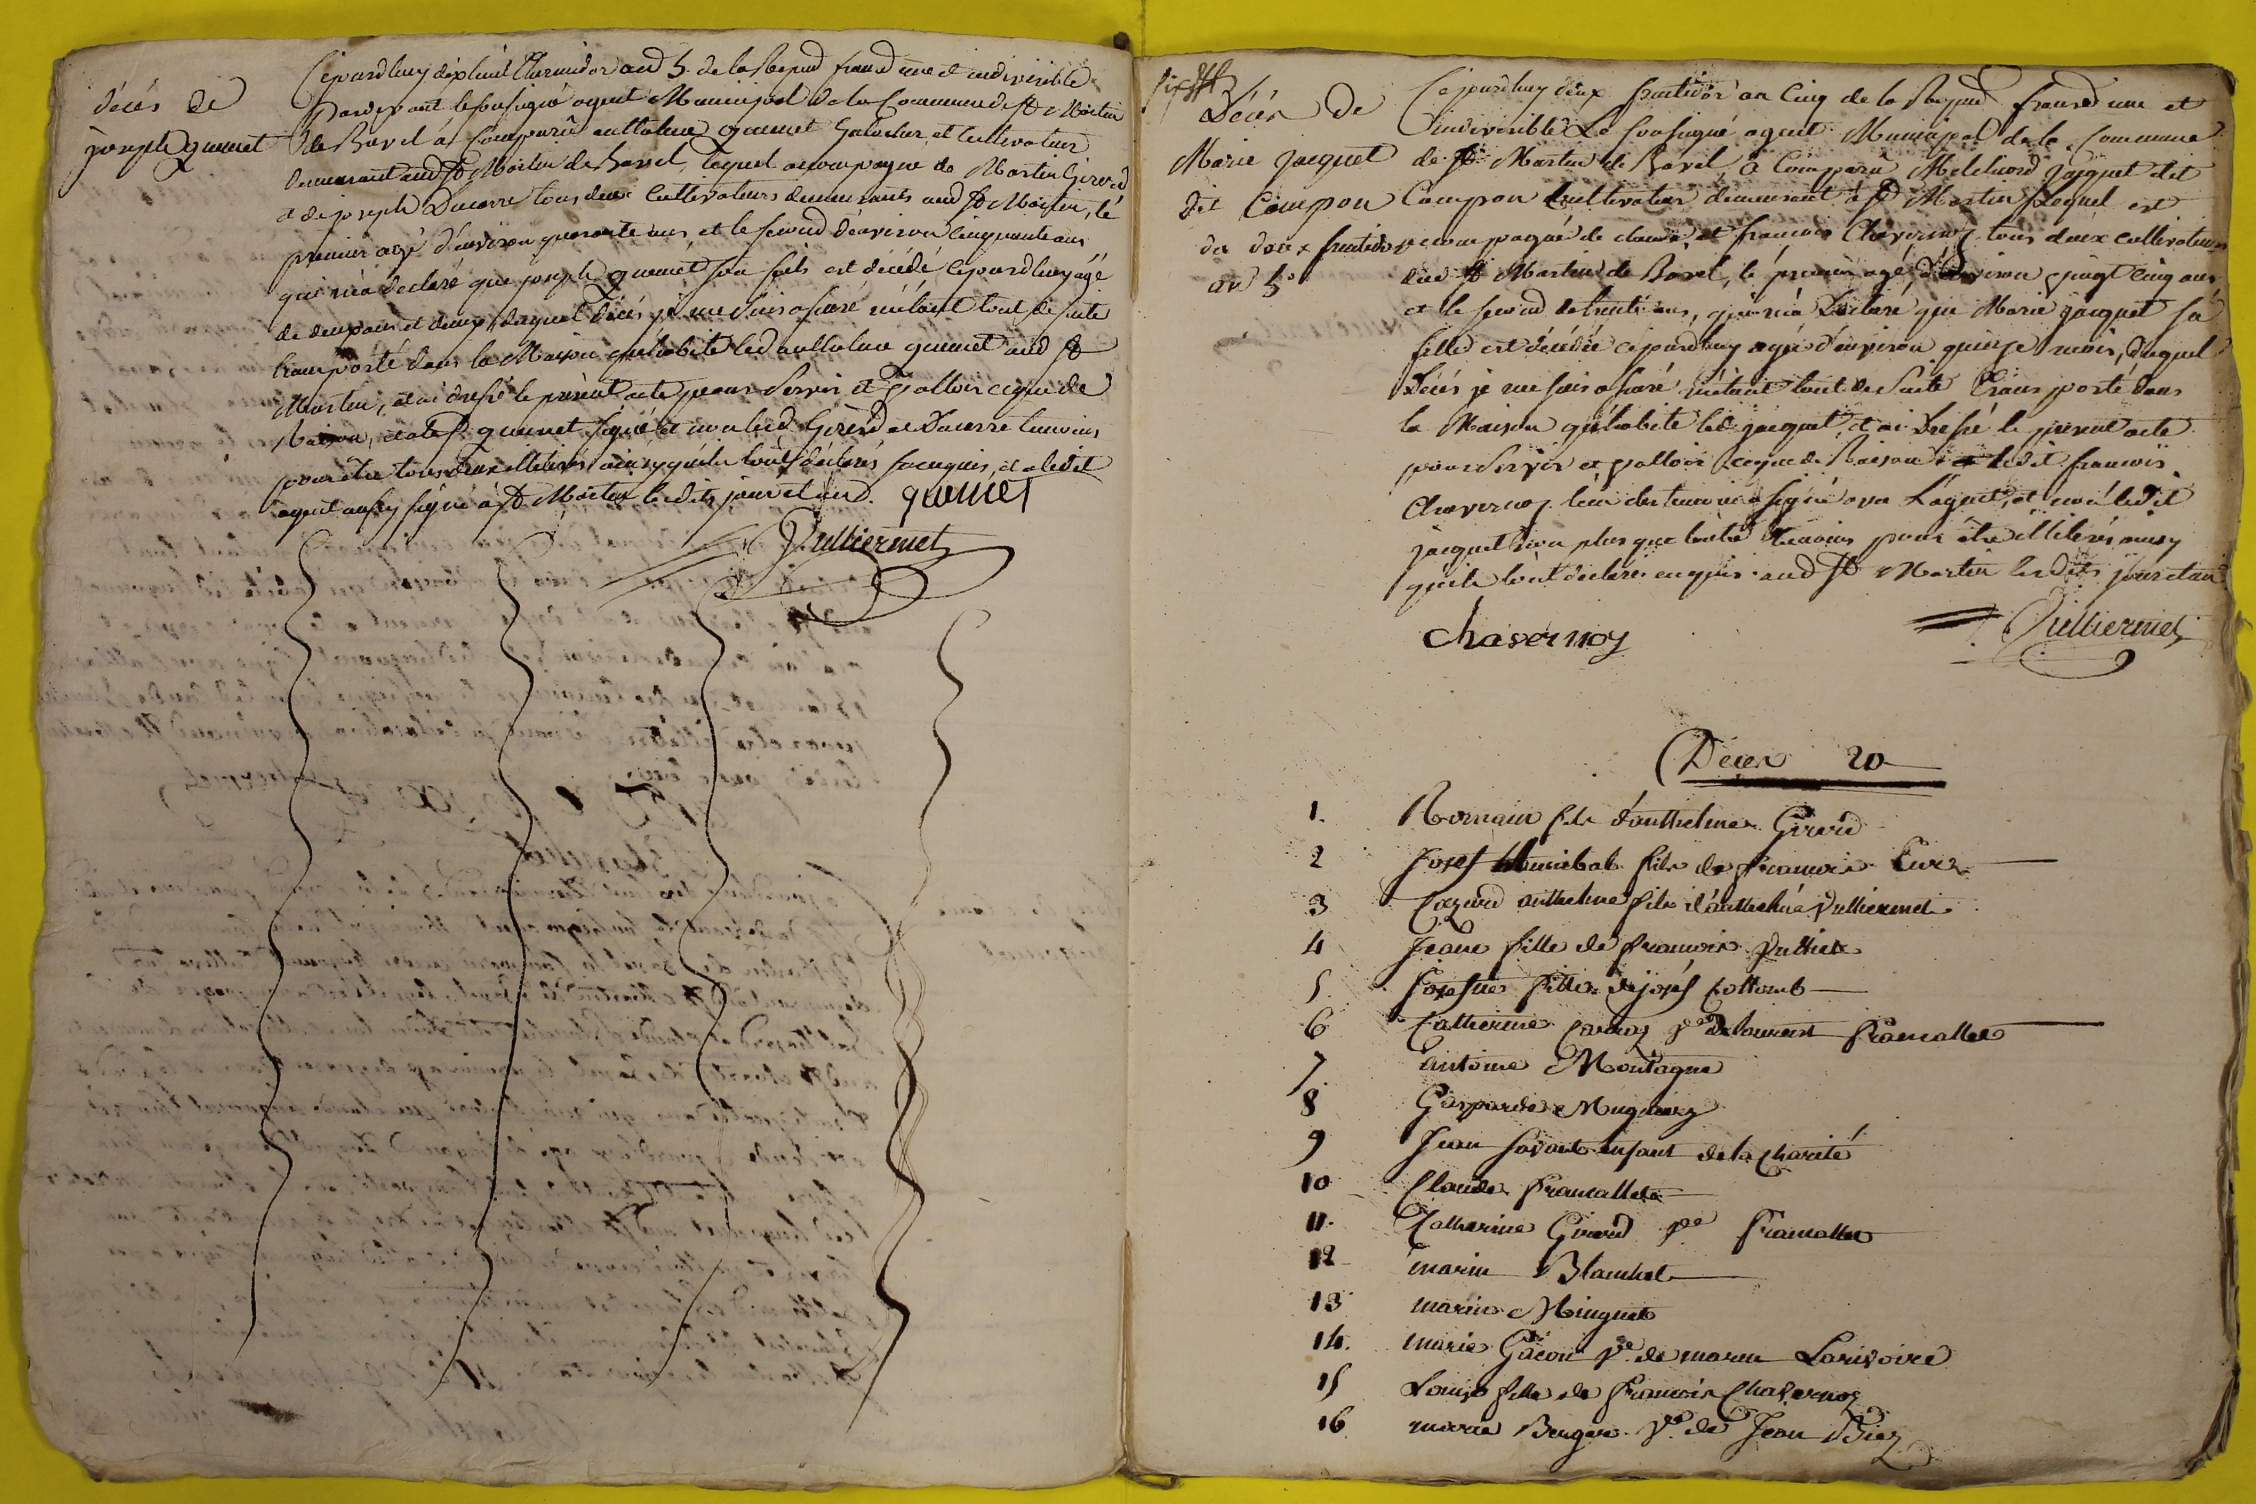 décés de
joseph quinet
Cejourdhuy dixhuit Thermidor and 5. de la Repud francd une et indivisible
Pardevant le sousigné agent Municipal de la Commune de St Martin
de Bavel a Comparû anthelme quinet Galochier et Cultivateur
demeurant aud St Martin de Bavel, lequel accompagné de Martin Girerd
et de joseph Ducarre tous deux cultivateurs demeurants aud St Martin, le
premier agé d'environ quarante ans et le second d'environ cinquante ans
qui m'a declaré que joseph quinet son fils est décédé cejourdhuy agé
de deux ans et demy, duquel décés je me suis assuré m'étant tout de suite
transporté dans la Maison qu'habite led anthelme quinet aud St
Martin, et ai dressé le présent acte pour servir et valloir ce que de
Raison, et a led. quinet signé et non led Girerd et Ducarre temoins
pour être tous deux illiterés ainsy qu'ils l'ont declarés enquis, et a ledit
agent aussy signé à St Martin lesdits jour et an. quinet
Vulliermet
Décés de
Marie jacquet
dit Compon
du deux fructidor
an 5e
Cejourdhuy deux fructidor an Cinq de la Repud francd une et
indivisible Le sousigné agent Municipal de la Commune
de St Martin de Bavel, a Comparû Melchiord jacquet dit
Compon Cultivateur demeurant à St Martin lequel est
accompagné de claude et francois Chavernoz tous deux cultivateurs
dud St Martin de Bavel, le premier agé d'environ vingt cinq ans
et le second de trente ans, qui m'a Declaré que Marie jacquet sa
fille est décédée cejourdhuy agée d'environ quinze mois, duquel
Décés je me suis assuré m'étant tout de suite transporté dans
la Maison qu'habite led jacquet, et ai Dressé le present acte
pour servir et valloir ce que de Raison et ledit francois
Chavernoz l'un des temoins a signé avec L'agent, et non ledit
jacquet non plus que l'autre temoins pour être illiterés ainsy
qu'ils l'ont declaré enquis. aud St Martin lesdits jour et an
Chavernoz
Vulliermet
Décés 20
1. Romain fils d'anthelme Girerd
2 Josef hannibal fils de francois
3 anthelme fils d'anthelme Vulliermet
4 Jeane fille de francois Vulliet
5. fille de josef Collomb
6 Catherine ve de laurent francallet
7 antoine Montagne
8 Gasparde Mugnier
9 Jean savant enfant de la charité
10 Claude francallet
11. Catherine Girerd ve francallet
12 marin Blanchet
13 marin Minguet
14. marie Gacon ve de marin Larivoire
15 Louise fille de francois Chavernoz
16 marie Berger ve de Jean Biez